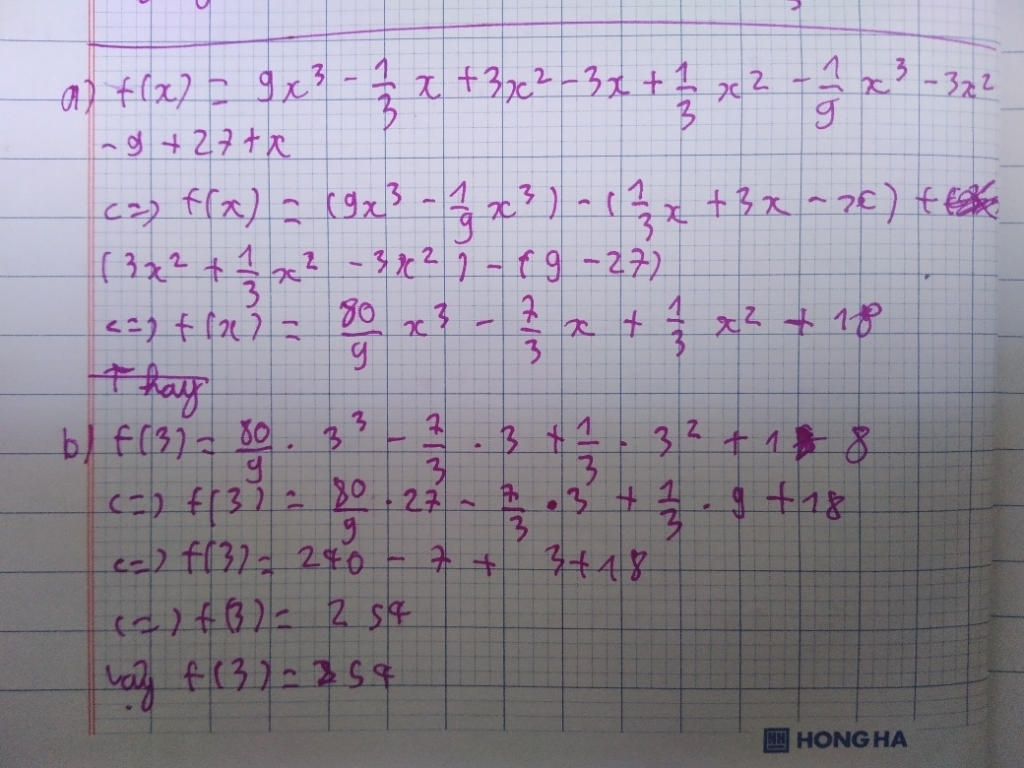 a) f(x) = 9x³ - 1/3 x + 3x² - 3x + 1/3 x² - 1/9 x³ - 3x²
- 9 + 27 + x
<=> f(x) = (9x³ - 1/9 x³) - (1/3 x + 3x - x) +
(3x² + 1/3 x² - 3x²) - (9 - 27)
<=> f(x) = 80/9 x³ - 7/3 x + 1/3 x² + 18
Thay
b) f(3) = 80/9 . 3³ - 7/3 . 3 + 1/3 . 3² + 18
<=> f(3) = 80/9 . 27 - 7/3 . 3 + 1/3 . 9 + 18
<=> f(3) = 240 - 7 + 3 + 18
<=> f(3) = 254
Vậy f(3) = 254
HONG HA